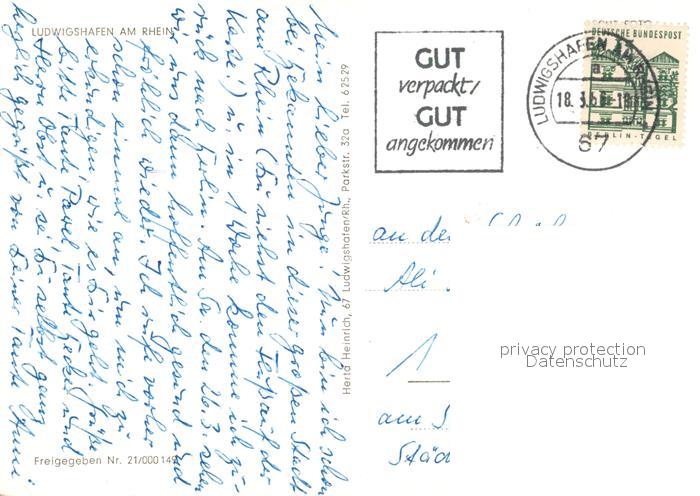 LUDWIGSHAFEN AM RHEIN
Mein lieber Junge! Nun bin ich schon
bei Bekannten in dieser großen Stadt
am Rhein (Du siehst den Fluß auf der
Karte!) u. in 1 Woche komme ich zu-
rück nach Berlin. Am Sa. den 26.3. sehen
wir uns dann hoffentlich gesund und
fröhlich wieder. Ich rufe vorher
schon einmal an, um mich zu
erkundigen, wie es Dir geht. Grüße
bitte Tante Tante und
Herrn Obst u. sei Du selbst ganz
herzlich gegrüßt von Deiner Tante
Freigegeben Nr. 21/000149
Herta Heinrich, 67 Ludwigshafen/Rh., Parkstr. 32a Tel. 62529
GUT
verpackt/
GUT
angekommen
LUDWIGSHAFEN AM RHEIN
a
18.3.6
67
DEUTSCHE BUNDESPOST
BERLIN-TEGEL
an den
Ali
1
am S
Städ
privacy protection
Datenschutz